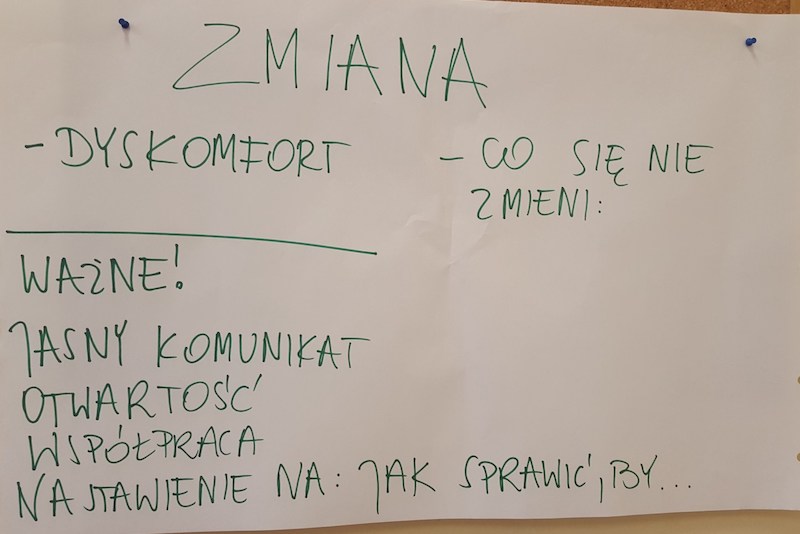 ZMIANA
- DYSKOMFORT
- CO SIĘ NIE
ZMIENI:
WAŻNE!
JASNY KOMUNIKAT
OTWARTOŚĆ
WSPÓŁPRACA
NASTAWIENIE NA: JAK SPRAWIĆ, BY...